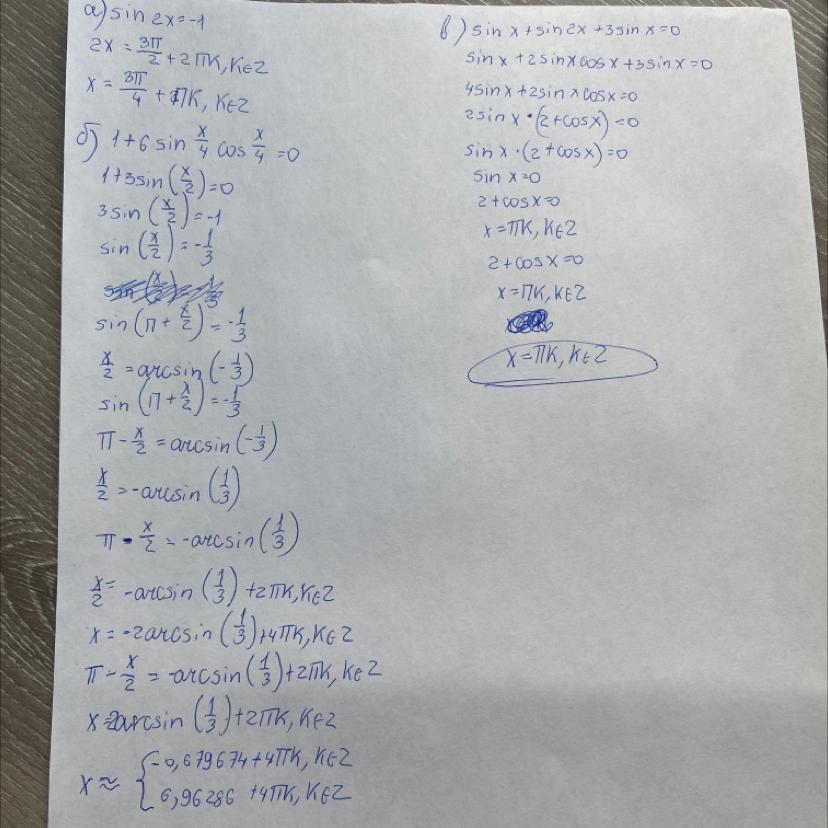 а) sin 2x=-1
2x = 3π/2 + 2πK, K∈Z
x = 3π/4 + πK, K∈Z
б) 1+6 sin x/4 cos x/4 =0
1+3sin(x/2)=0
3sin(x/2)=-1
sin(x/2)=-1/3
sin(π+x/2)=-1/3
x/2 =arcsin(-1/3)
sin(π+x/2)=-1/3
π-x/2 =arcsin(-1/3)
x/2 =-arcsin(1/3)
π-x/2 =-arcsin(1/3)
x/2 = -arcsin(1/3)+2πK, K∈Z
x = -2arcsin(1/3)+4πK, K∈Z
π-x/2 = -arcsin(1/3)+2πK, K∈Z
x=2arcsin(1/3)+2πK, K∈Z
x≈ { -0,679674+4πK, K∈Z
6,96286 +4πK, K∈Z
в) sin x+sin2x+3sin x=0
sin x+2sinx cosx+3sinx=0
4sinx+2sinx cosx=0
2sin x·(2+cosx)=0
sin x·(2+cosx)=0
sin x=0
2+cosx=0
x=πK, K∈Z
2+cosx=0
x=πK, K∈Z
x=πK, K∈Z